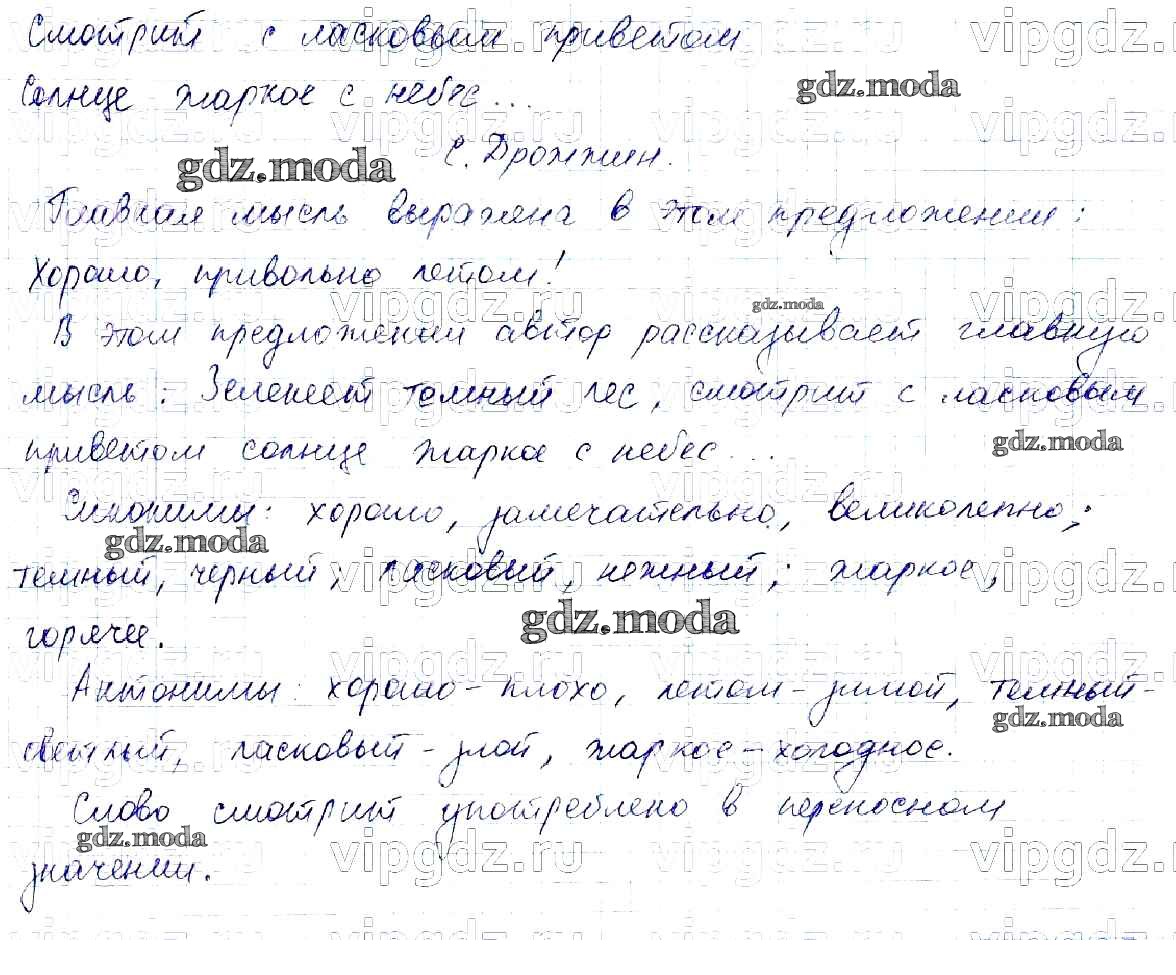 Смотрит с ласковым приветом
Солнце жаркое с небес...
С. Дрожжин.
Главная мысль выражена в этом предложении:
Хорошо, привольно летом!
В этом предложении автор рассказывает главную
мысль: Зеленеет темный лес, смотрит с ласковым
приветом солнце жаркое с небес...
Синонимы: хорошо, замечательно, великолепно;
темный, черный; ласковый, нежный; жаркое,
горячее.
Антонимы: хорошо - плохо, летом - зимой, темный -
светлый, ласковый - злой, жаркое - холодное.
Слово смотрит употреблено в переносном
значении.
gdz.moda
vipgdz.ru